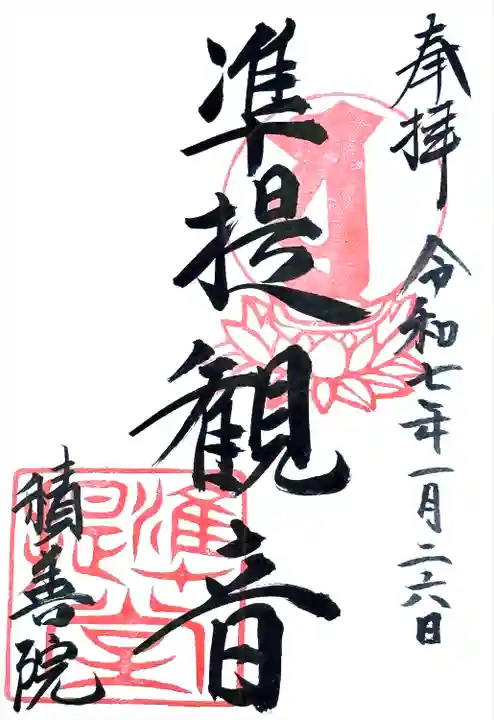 奉拝 令和七年一月二六日
准提観音
積善院
準提堂